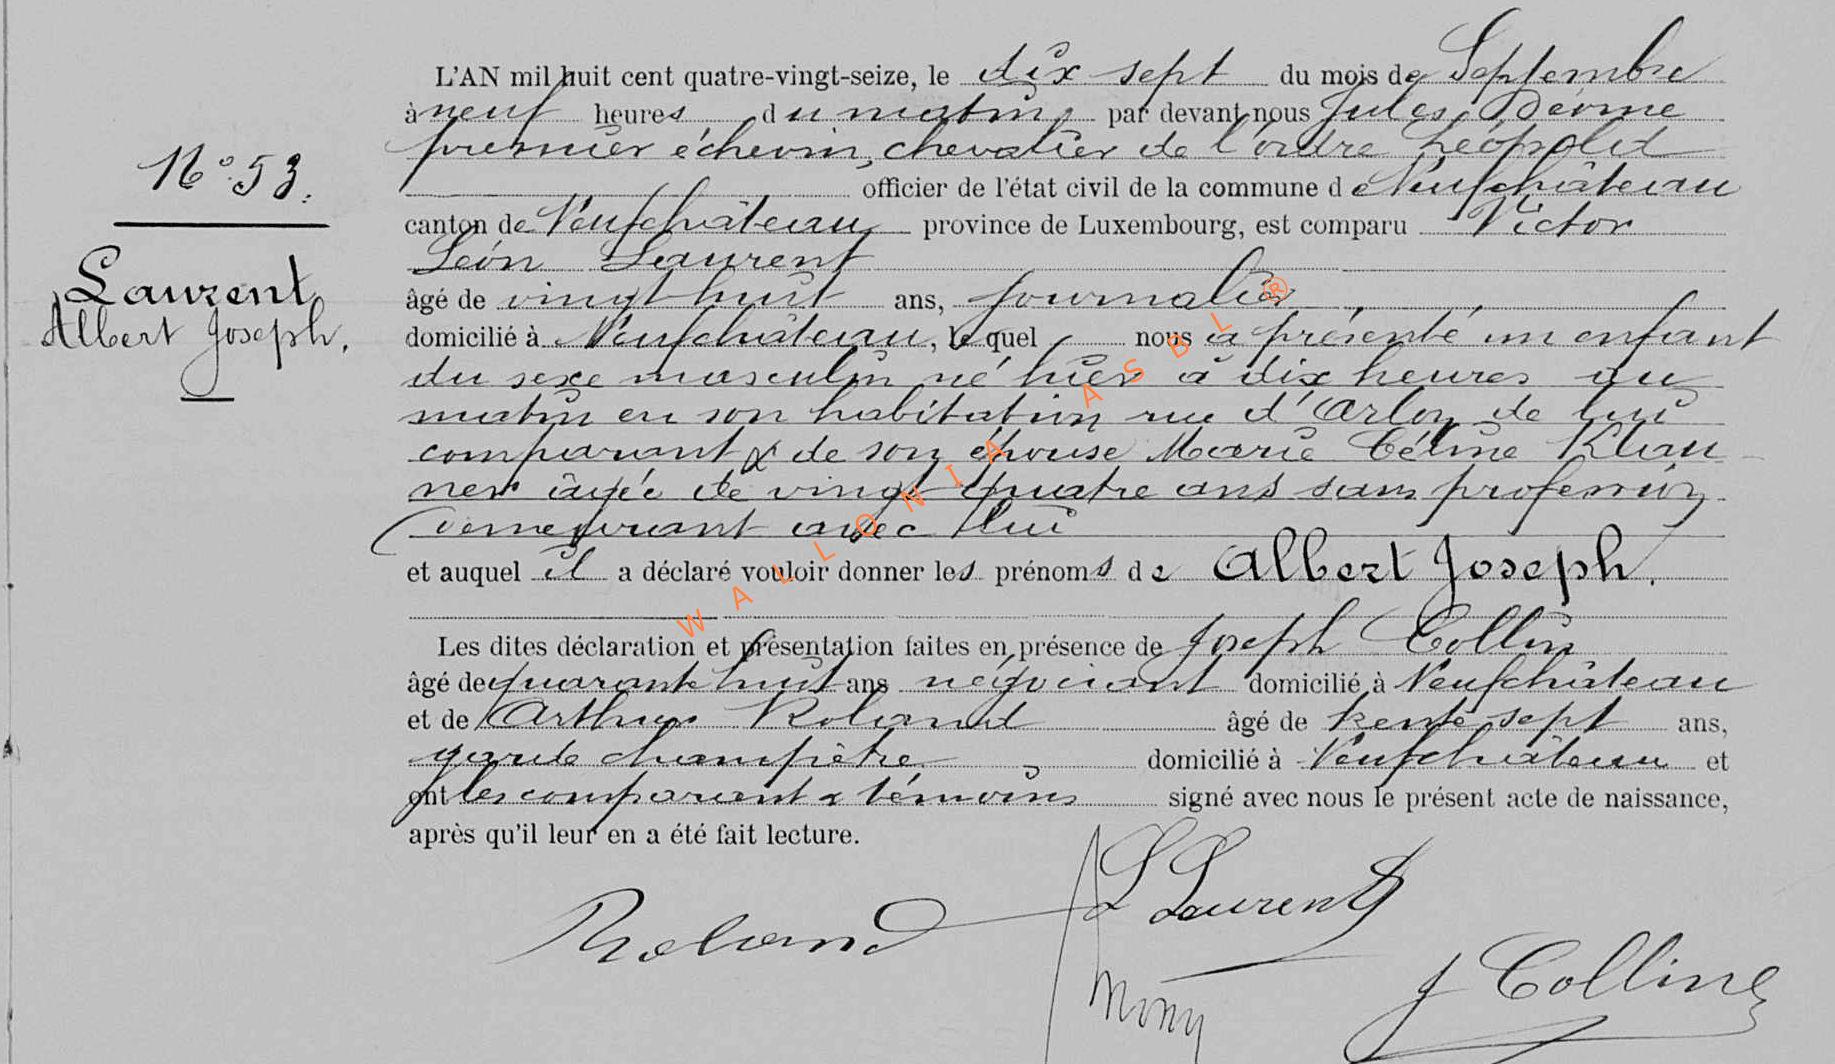 N° 53.
Laurent
Albert Joseph.
L'AN mil huit cent quatre-vingt-seize, le dix sept du mois de Septembre
à neuf heures du matin par devant nous Jules
premier échevin, chevalier de l'ordre Léopold
officier de l'état civil de la commune de Neufchâteau
canton de Neufchâteau province de Luxembourg, est comparu Victor
Léon Laurent
âgé de vingt huit ans, journalier
domicilié à Neufchâteau, lequel nous a présenté un enfant
du sexe masculin né hier à dix heures du
matin en son habitation rue d'Arlon de lui
comparant & de son épouse Marie Céline Klau
ner âgée de vingt quatre ans sans profession
demeurant avec lui
et auquel il a déclaré vouloir donner les prénoms de Albert Joseph.
Les dites déclaration et présentation faites en présence de Joseph Collin
âgé de quarante huit ans négociant domicilié à Neufchâteau
et de Arthur Roland âgé de trente sept ans,
garde champêtre domicilié à Neufchâteau et
ont les comparant & témoins signé avec nous le présent acte de naissance,
après qu'il leur en a été fait lecture.
L Laurent
Roland
J Collin
WALLONIA ASBL ®